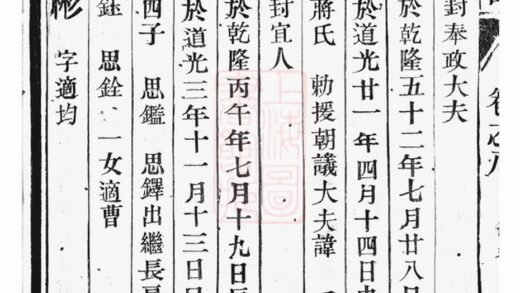 卷之九
封奉政大夫
於乾隆五十二年七月廿八日
於道光廿一年四月十四日
蔣氏 勅援朝議大夫諱
封宜人
於乾隆丙午年七月十九日
於道光三年十一月十三日
四子 思鑑 思鐸出繼長
鈺 思銓 一女適曹
彬 字適均
上海圖